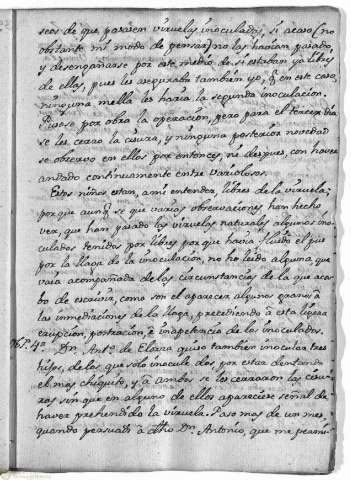 seos de que pasasen viruelas inoculados, si acaso (no
obstante mi modo de pensar) no las havian pasado,
y desengañarse por este medio de si estaban ya libres
de ellas, pues les aseguraba tambien yo, qe en este caso,
ninguna mella les haria la segunda inoculacion.
Pusose por obra la operacion, pero para el tercer dia
se les cerro la cisura, y ninguna posterior novedad
se observo en ellos por entonces, ni despues, con haver
andado continuamente entre variolosos.
Estos niños estan, a mi entender, libres de la viruela;
porque aunqe se que varias observaciones han hecho
ver, que han pasado las viruelas naturales algunos ino-
culados tenidos por libres por que havia fluido el pus
por la llaga de la inoculacion, no ho leido alguna que
vaia acompañada de las circunstancias de la que aca-
bo de escrivir, como son el aparecer algunos granos a
las inmediaciones de la llaga, precediendo a esta ligera
erupcion, postracion e inapetencia de los inoculados.
Dn. Anto. de Elorza quiso tambien inocular tres
hijos, de los que solo inocule dos, por estar dentando
el mas chiquito, y a ambos se les cerraron las cisu-
ras sin que en alguno de ellos apareciese señal de
haver prehendido la viruela. Paso mas de un mes,
quando persuadi a dho Dn. Antonio, que me permi-